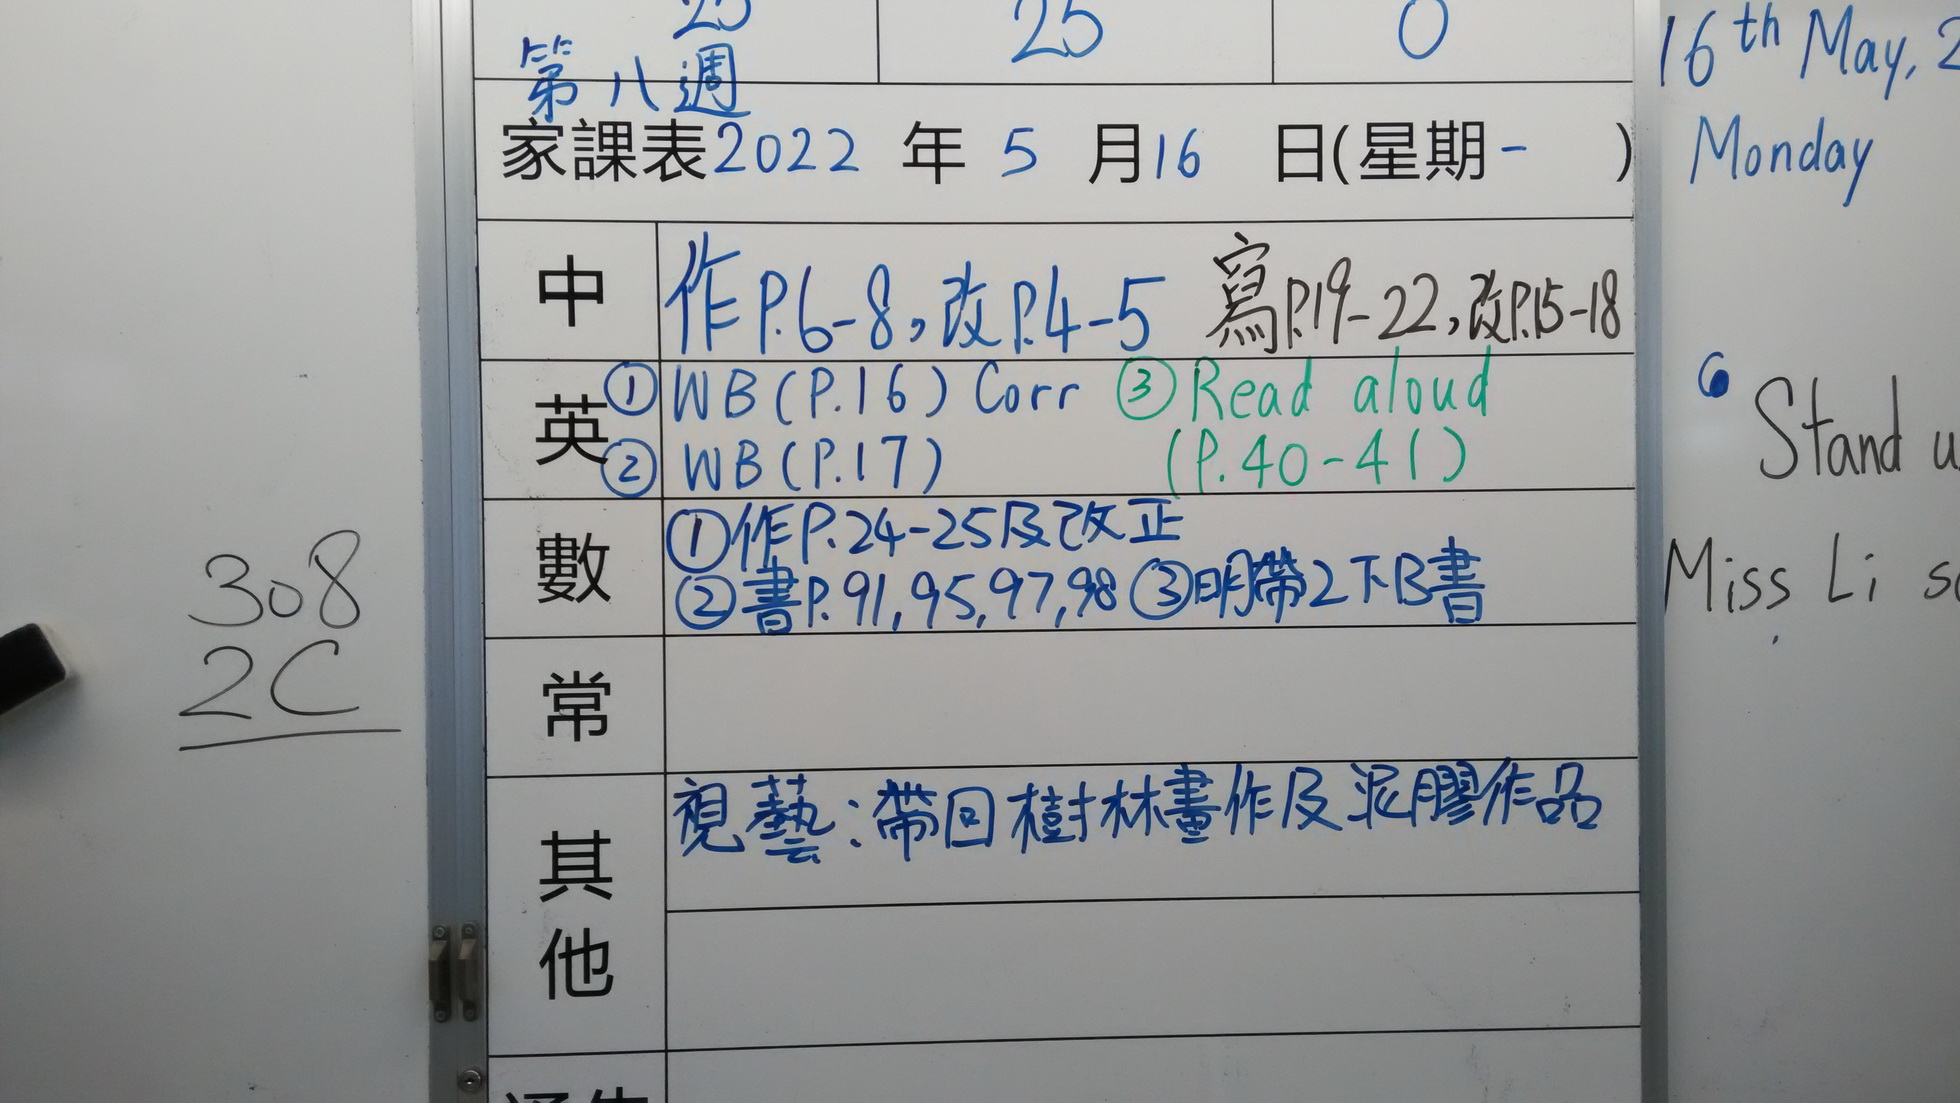 25 25 0
第八週
家課表2022 年 5 月16 日(星期一 )
中 作P.6-8,改P.4-5 寫P.19-22,改P.15-18
英 ① WB(P.16) Corr ③ Read aloud
② WB(P.17) (P.40-41)
數 ①作P.24-25及改正
②書P.91,95,97,98 ③明帶2下B書
常
其他 視藝:帶回樹林畫作及泥膠作品
308
2C
16th May, 2
Monday
Stand u
Miss Li